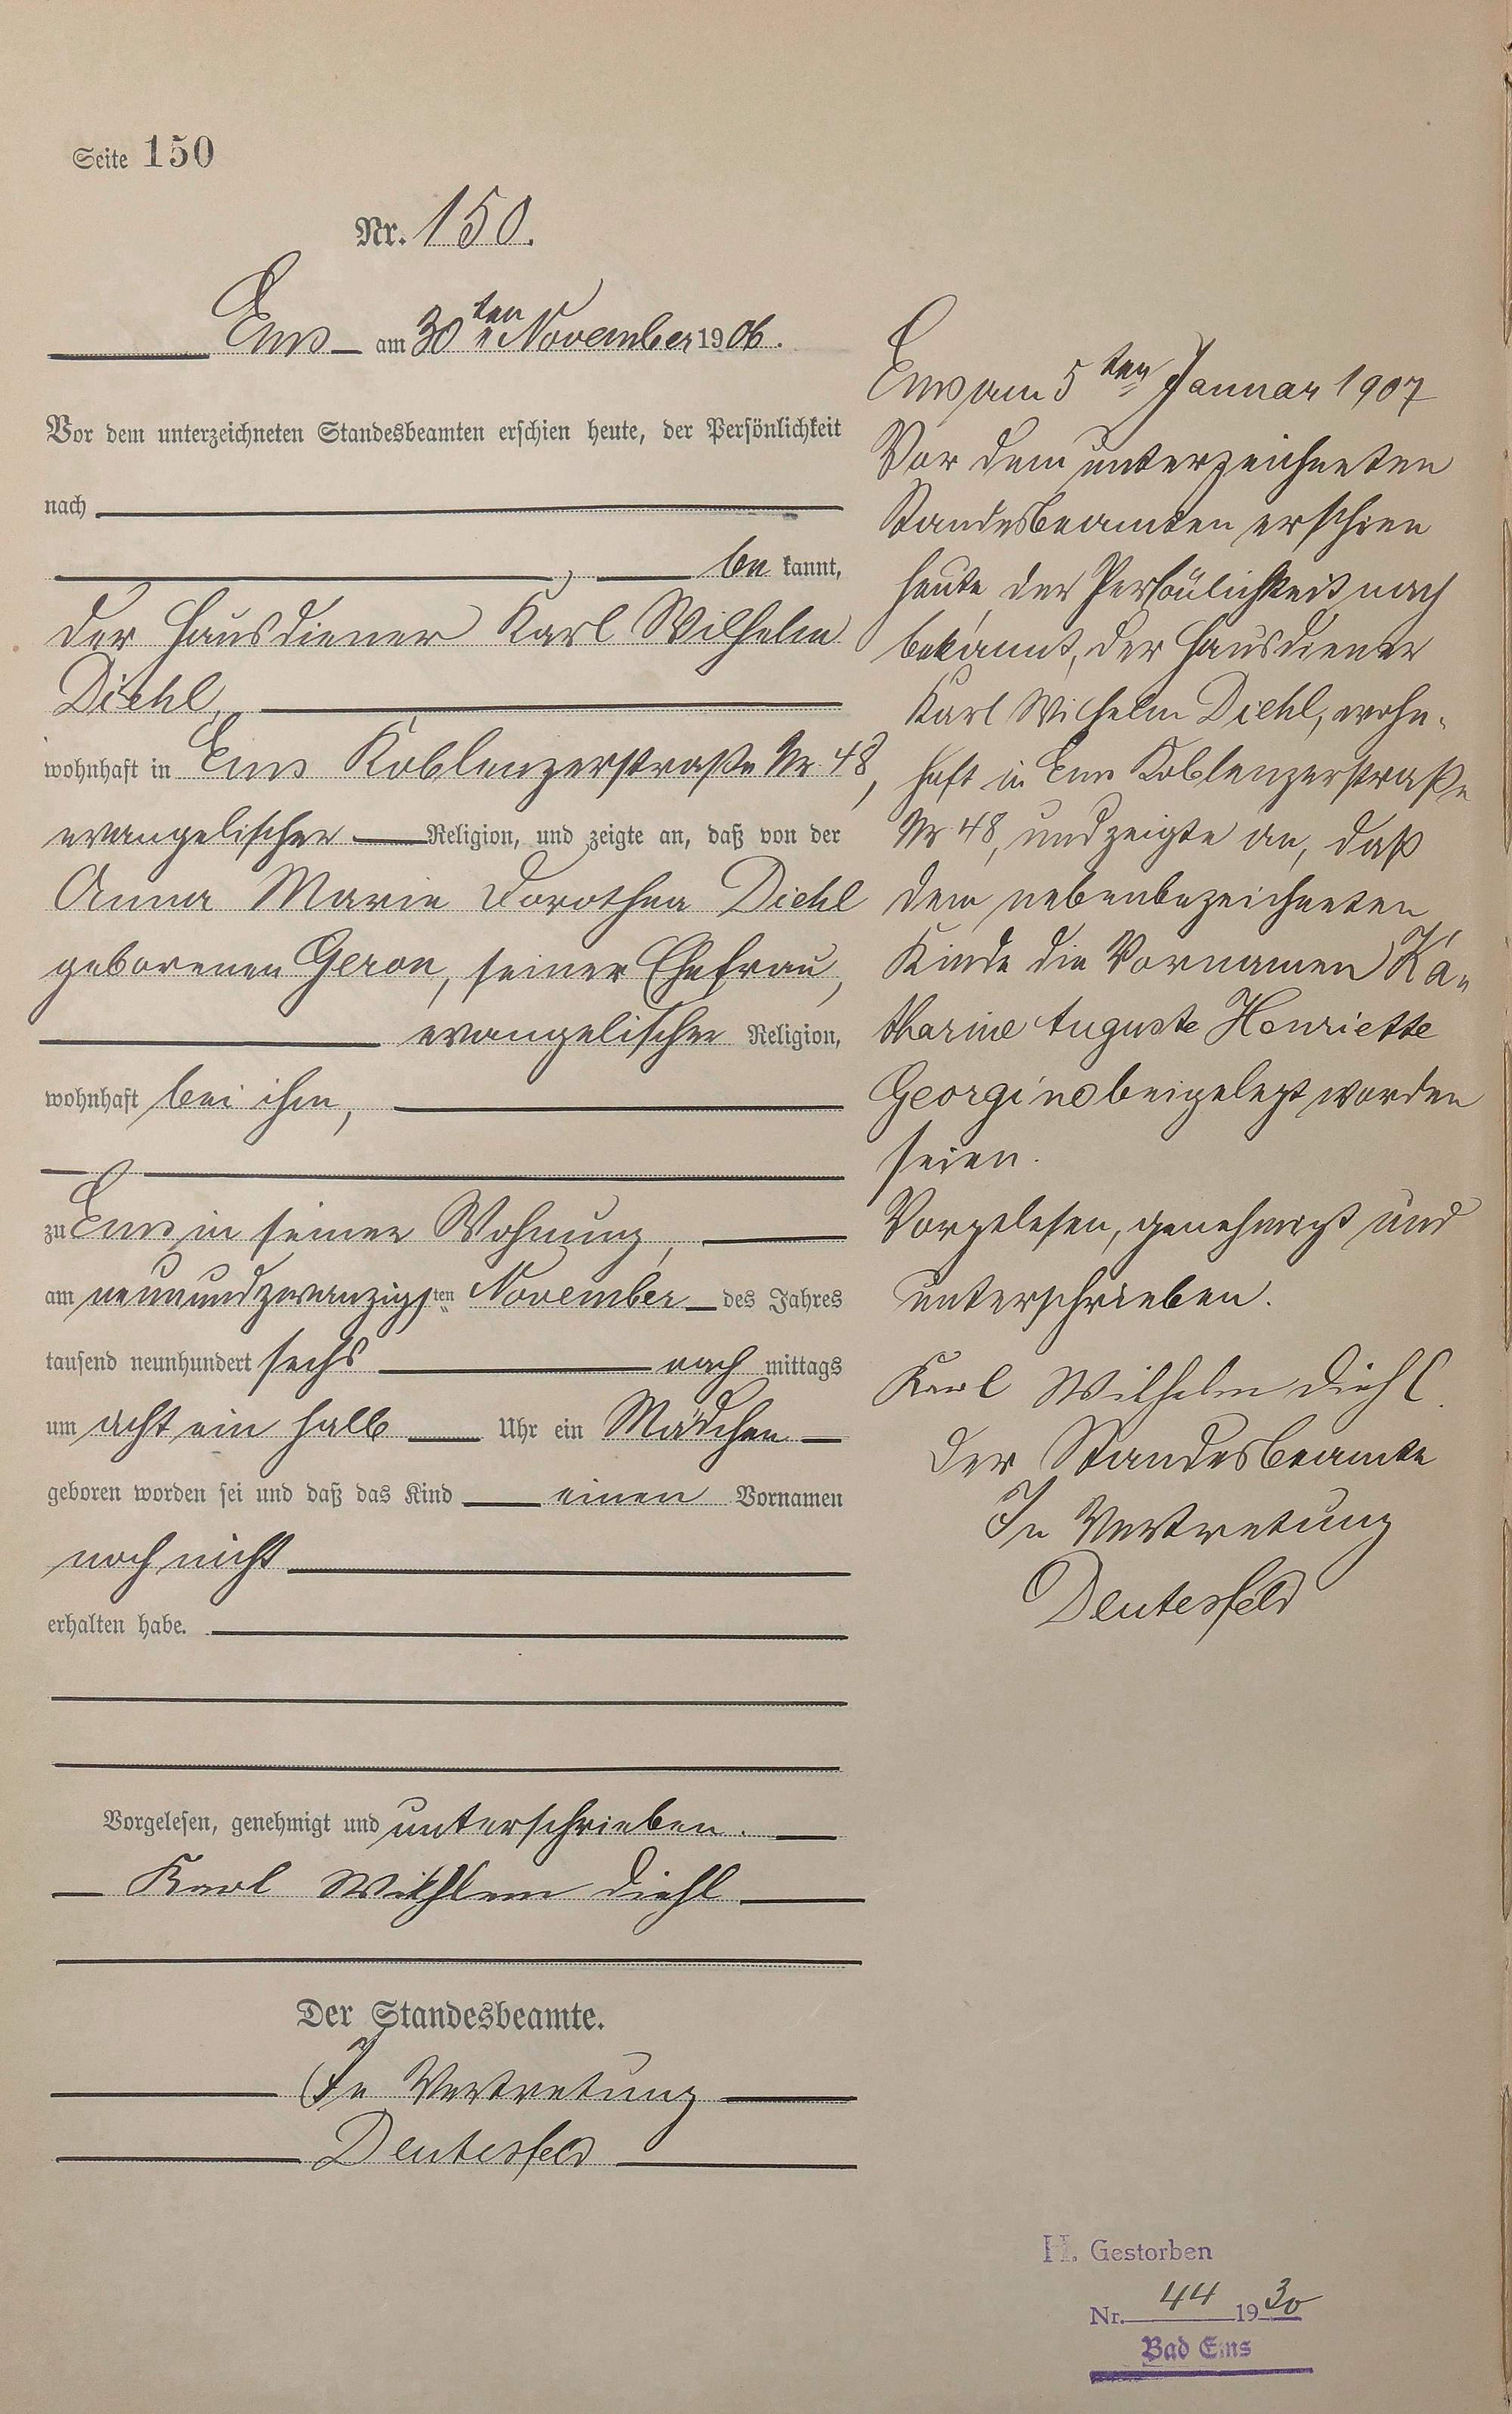 Seite 150
Nr. 150.
Ems am 30ten November 1906.
Vor dem unterzeichneten Standesbeamten erschien heute, der Persönlichkeit
nach
, be kannt,
der Hausdiener Karl Wilhelm
Diehl,
wohnhaft in Ems Koblenzerstraße Nr. 48,
evangelischer Religion, und zeigte an, daß von der
Anna Marie Dorothea Diehl
geborenen Geron, seiner Ehefrau,
evangelischer Religion,
wohnhaft bei ihm,
zu Ems in seiner Wohnung,
am neunundzwanzigsten November des Jahres
tausend neunhundert sechs nach mittags
um acht ein halb Uhr ein Mädchen
geboren worden sei und daß das Kind einen Vornamen
noch nicht
erhalten habe.
Vorgelesen, genehmigt und unterschrieben.
Karl Wilhlem Diehl
Der Standesbeamte.
In Vertretung
Deutesfeld
Ems am 5ten Januar 1907
Vor dem unterzeichneten
Standesbeamten erschien
heute, der Persönlichkeit nach
bekannt, der Hausdiener
Karl Wilhelm Diehl, wohn-
haft in Ems Koblenzerstraße
Nr 48, und zeigte an, daß
dem nebenbezeichneten
Kinde die Vornamen Ka-
tharine Auguste Henriette
Georgine beigelegt worden
seien.
Vorgelesen, genehmigt und
unterschrieben.
Karl Wilhelm Diehl.
Der Standesbeamte
In Vertretung
Deutesfeld
H. Gestorben
Nr. 44 1930
Bad Ems